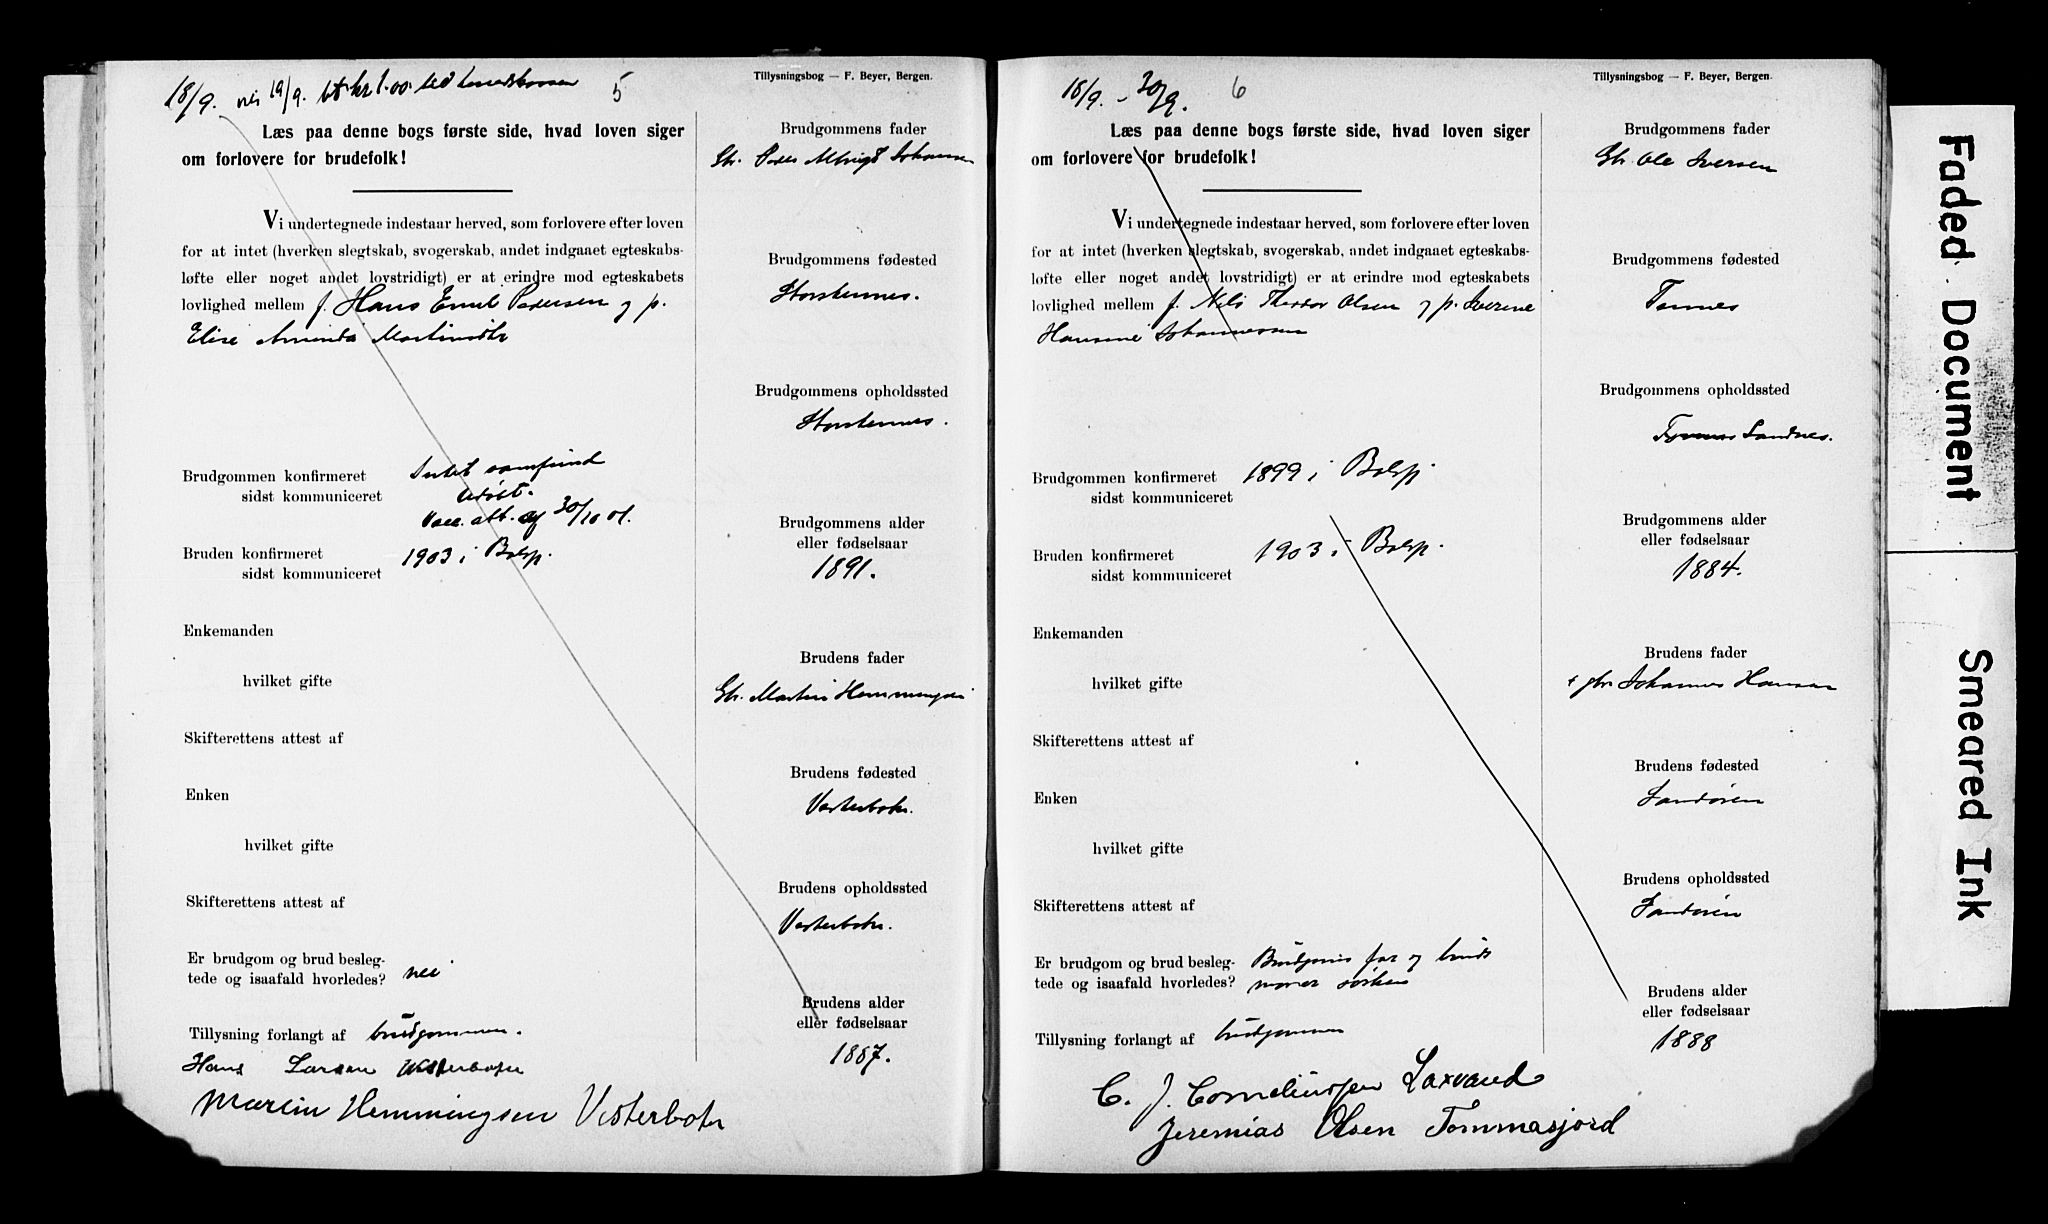 18/9. vis 19/9. bt. kr 1.00.
5
Tillysningsbog — F. Beyer, Bergen.
Læs paa denne bogs første side, hvad loven siger
om forlovere for brudefolk!
Vi undertegnede indestaar herved, som forlovere efter loven
for at intet (hverken slegtskab, svogerskab, andet indgaaet egteskabs-
løfte eller noget andet lovstridigt) er at erindre mod egteskabets
lovlighed mellem f. Hans Emil Pedersen og p.
Elise Aminda Martinsdtr
Brudgommen konfirmeret Intet samfund
sidst kommuniceret
Vacc. att. af 30/10 01.
Bruden konfirmeret 1903 i Balsfj.
sidst kommuniceret
Enkemanden
hvilket gifte
Skifterettens attest af
Enken
hvilket gifte
Skifterettens attest af
Er brudgom og brud besleg-
tede og isaafald hvorledes? nei
Tillysning forlangt af brudgommen.
Hans Larsen Vesterbotn
Martin Hemmingsen Vesterbotn
Brudgommens fader
Gbr. Peder Albrigt Johansen
Brudgommens fødested
Storstennes.
Brudgommens opholdssted
Storstennes.
Brudgommens alder
eller fødselsaar
1891.
Brudens fader
Gbr. Martin Hemmingsen
Brudens fødested
Vesterbotn.
Brudens opholdssted
Vesterbotn.
Brudens alder
eller fødselsaar
1887.
18/9. - 30/9.
6
Tillysningsbog — F. Beyer, Bergen.
Læs paa denne bogs første side, hvad loven siger
om forlovere for brudefolk!
Vi undertegnede indestaar herved, som forlovere efter loven
for at intet (hverken slegtskab, svogerskab, andet indgaaet egteskabs-
løfte eller noget andet lovstridigt) er at erindre mod egteskabets
lovlighed mellem f. Nils Theodor Olsen og p. Iverine
Hansine Johannessen
Brudgommen konfirmeret 1899 i Balsfj.
sidst kommuniceret
Bruden konfirmeret 1903 i Balsfj.
sidst kommuniceret
Enkemanden
hvilket gifte
Skifterettens attest af
Enken
hvilket gifte
Skifterettens attest af
Er brudgom og brud besleg- Brudgoms far og bruds
tede og isaafald hvorledes? moder søsken
Tillysning forlangt af brudgommen
C. J. Corneliussen Laxvand
Jeremias Olsen Tommasjord
Brudgommens fader
Gbr Ole Iversen
Brudgommens fødested
Tennes
Brudgommens opholdssted
Sandnes.
Brudgommens alder
eller fødselsaar
1884.
Brudens fader
+ gbr Johannes Hansen
Brudens fødested
Sandøren
Brudens opholdssted
Sandøren
Brudens alder
eller fødselsaar
1888
Faded Document
Smeared Ink